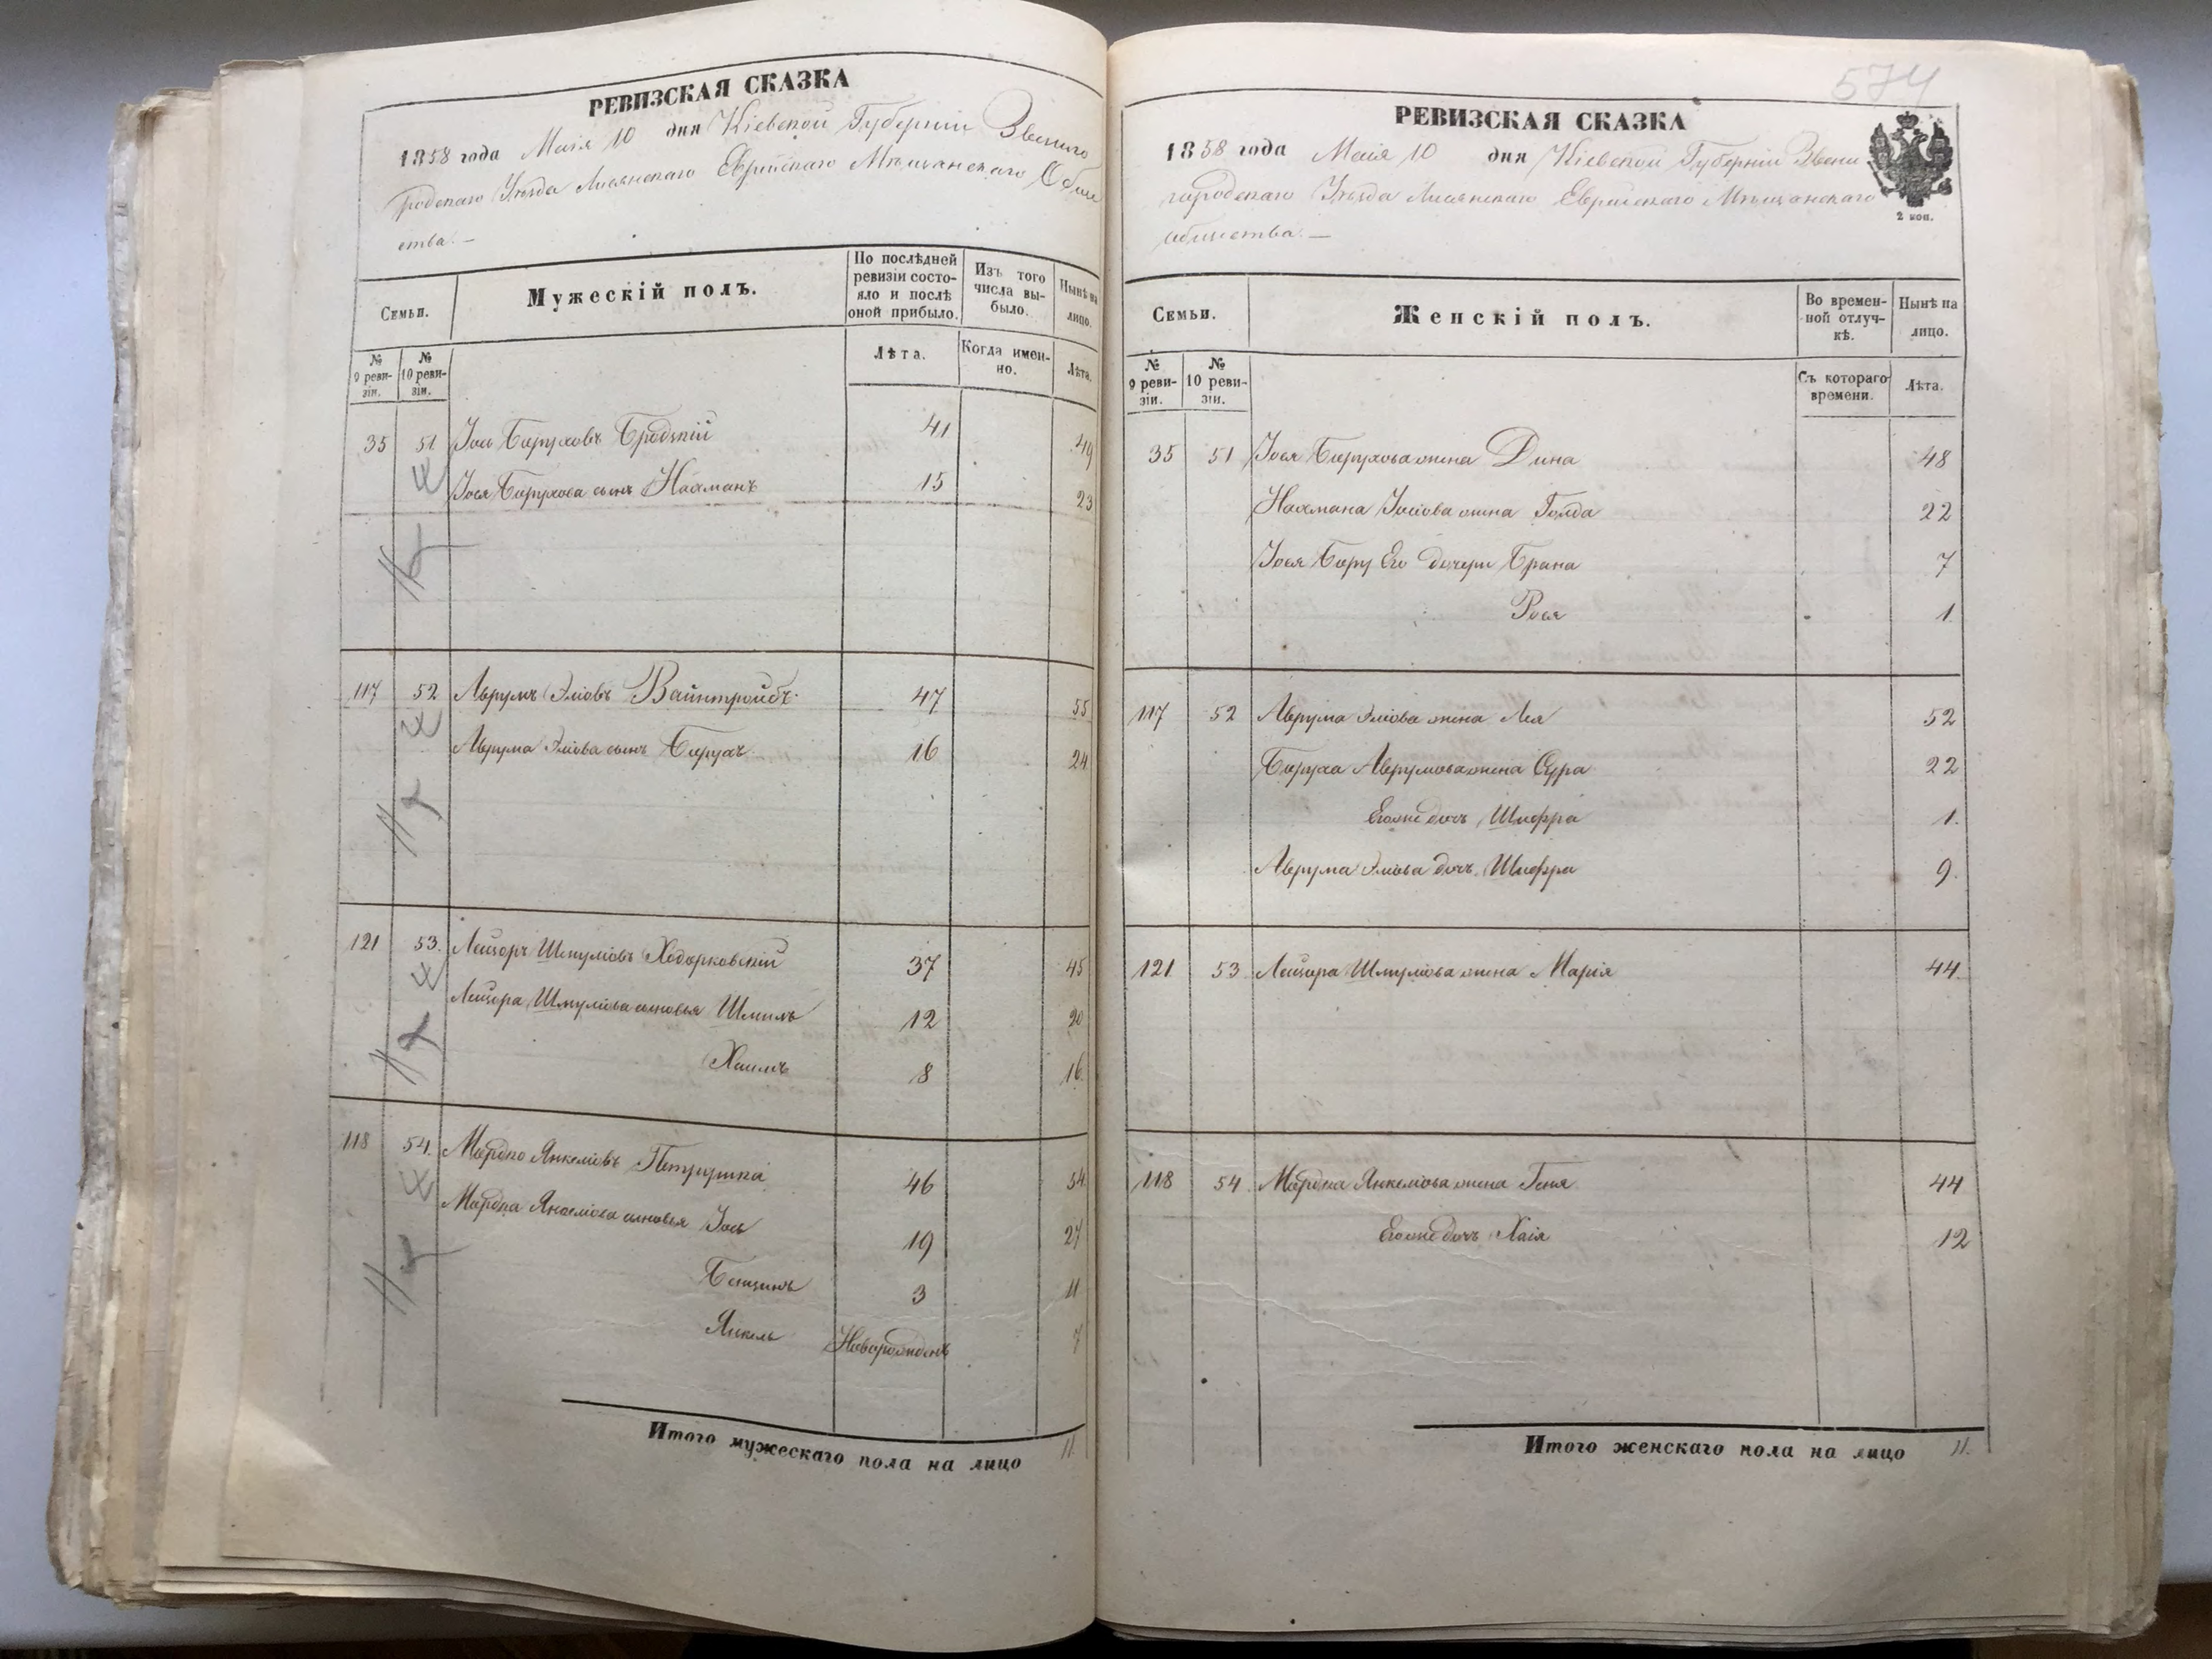 РЕВИЗСКАЯ СКАЗКА
1858 года Маія 10 дня Кіевской Губерніи Звениго
родскаго Уѣзда Лисянскаго Еврейскаго Мѣщанскаго Обще
ства. —
Семьи.
Мужескій полъ.
По послѣдней ревизіи состояло и послѣ оной прибыло.
Изъ того числа выбыло.
Нынѣ на лицо.
№ 9 ревизіи.
№ 10 ревизіи.
Лѣта.
Когда именно.
Лѣта.
35 51 Іось Боруховъ Бродскій 41 49
Іося Борухова сынъ Нахманъ 15 23
117 52 Аврумъ Эліовъ Вайнтройбъ 47 55
Аврума Эліова сынъ Борухъ 16 24
121 53. Лейзоръ Шмуліовъ Ходорковскій 37 45
Лейзора Шмуліова сыновья Шмиль 12 20
Хаимъ 8 16
118 54. Мордко Янкеліовъ Петрушка 46 54
Мордка Янкеліова сыновья Іось 19 27
Бенционъ 3 11
Янкель Новорожденъ 7
Итого мужескаго пола на лицо 11.
574
РЕВИЗСКАЯ СКАЗКА
2 коп.
1858 года Маія 10 дня Кіевской Губерніи Звени
городскаго Уѣзда Лисянскаго Еврейскаго Мѣщанскаго
общества. —
Семьи.
Женскій полъ.
Во временной отлучкѣ.
Нынѣ на лицо.
№ 9 ревизіи.
№ 10 ревизіи.
Съ котораго времени.
Лѣта.
35 51 Іося Борухова жена Дина 48
Нахмана Іосіова жена Голда 22
Іося Бору Его дочери Брана 7
Рося 1
117 52 Аврума Эліова жена Лея 52
Боруха Аврумова жена Сура 22
Его же дочь Шифра 1.
Аврума Эліова дочь Шифра 9.
121 53 Лейзора Шмуліова жена Марія 44.
118 54. Мордка Янкеліова жена Геня 44
Его же дочь Хаія 12
Итого женскаго пола на лицо 11.